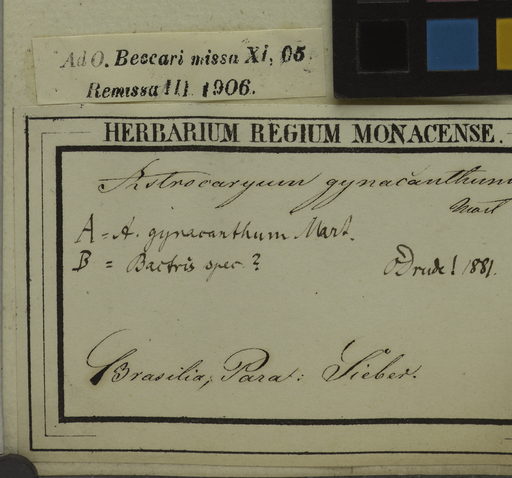 Ad O. Beccari missa XI, 05.
Remissa III 1906.
HERBARIUM REGIUM MONACENSE.
Astrocaryum gynacanthum
Mart
A = A. gynacanthum Mart.
B = Bactris spec? ODrude! 1881.
Brasilia, Para: Sieber.